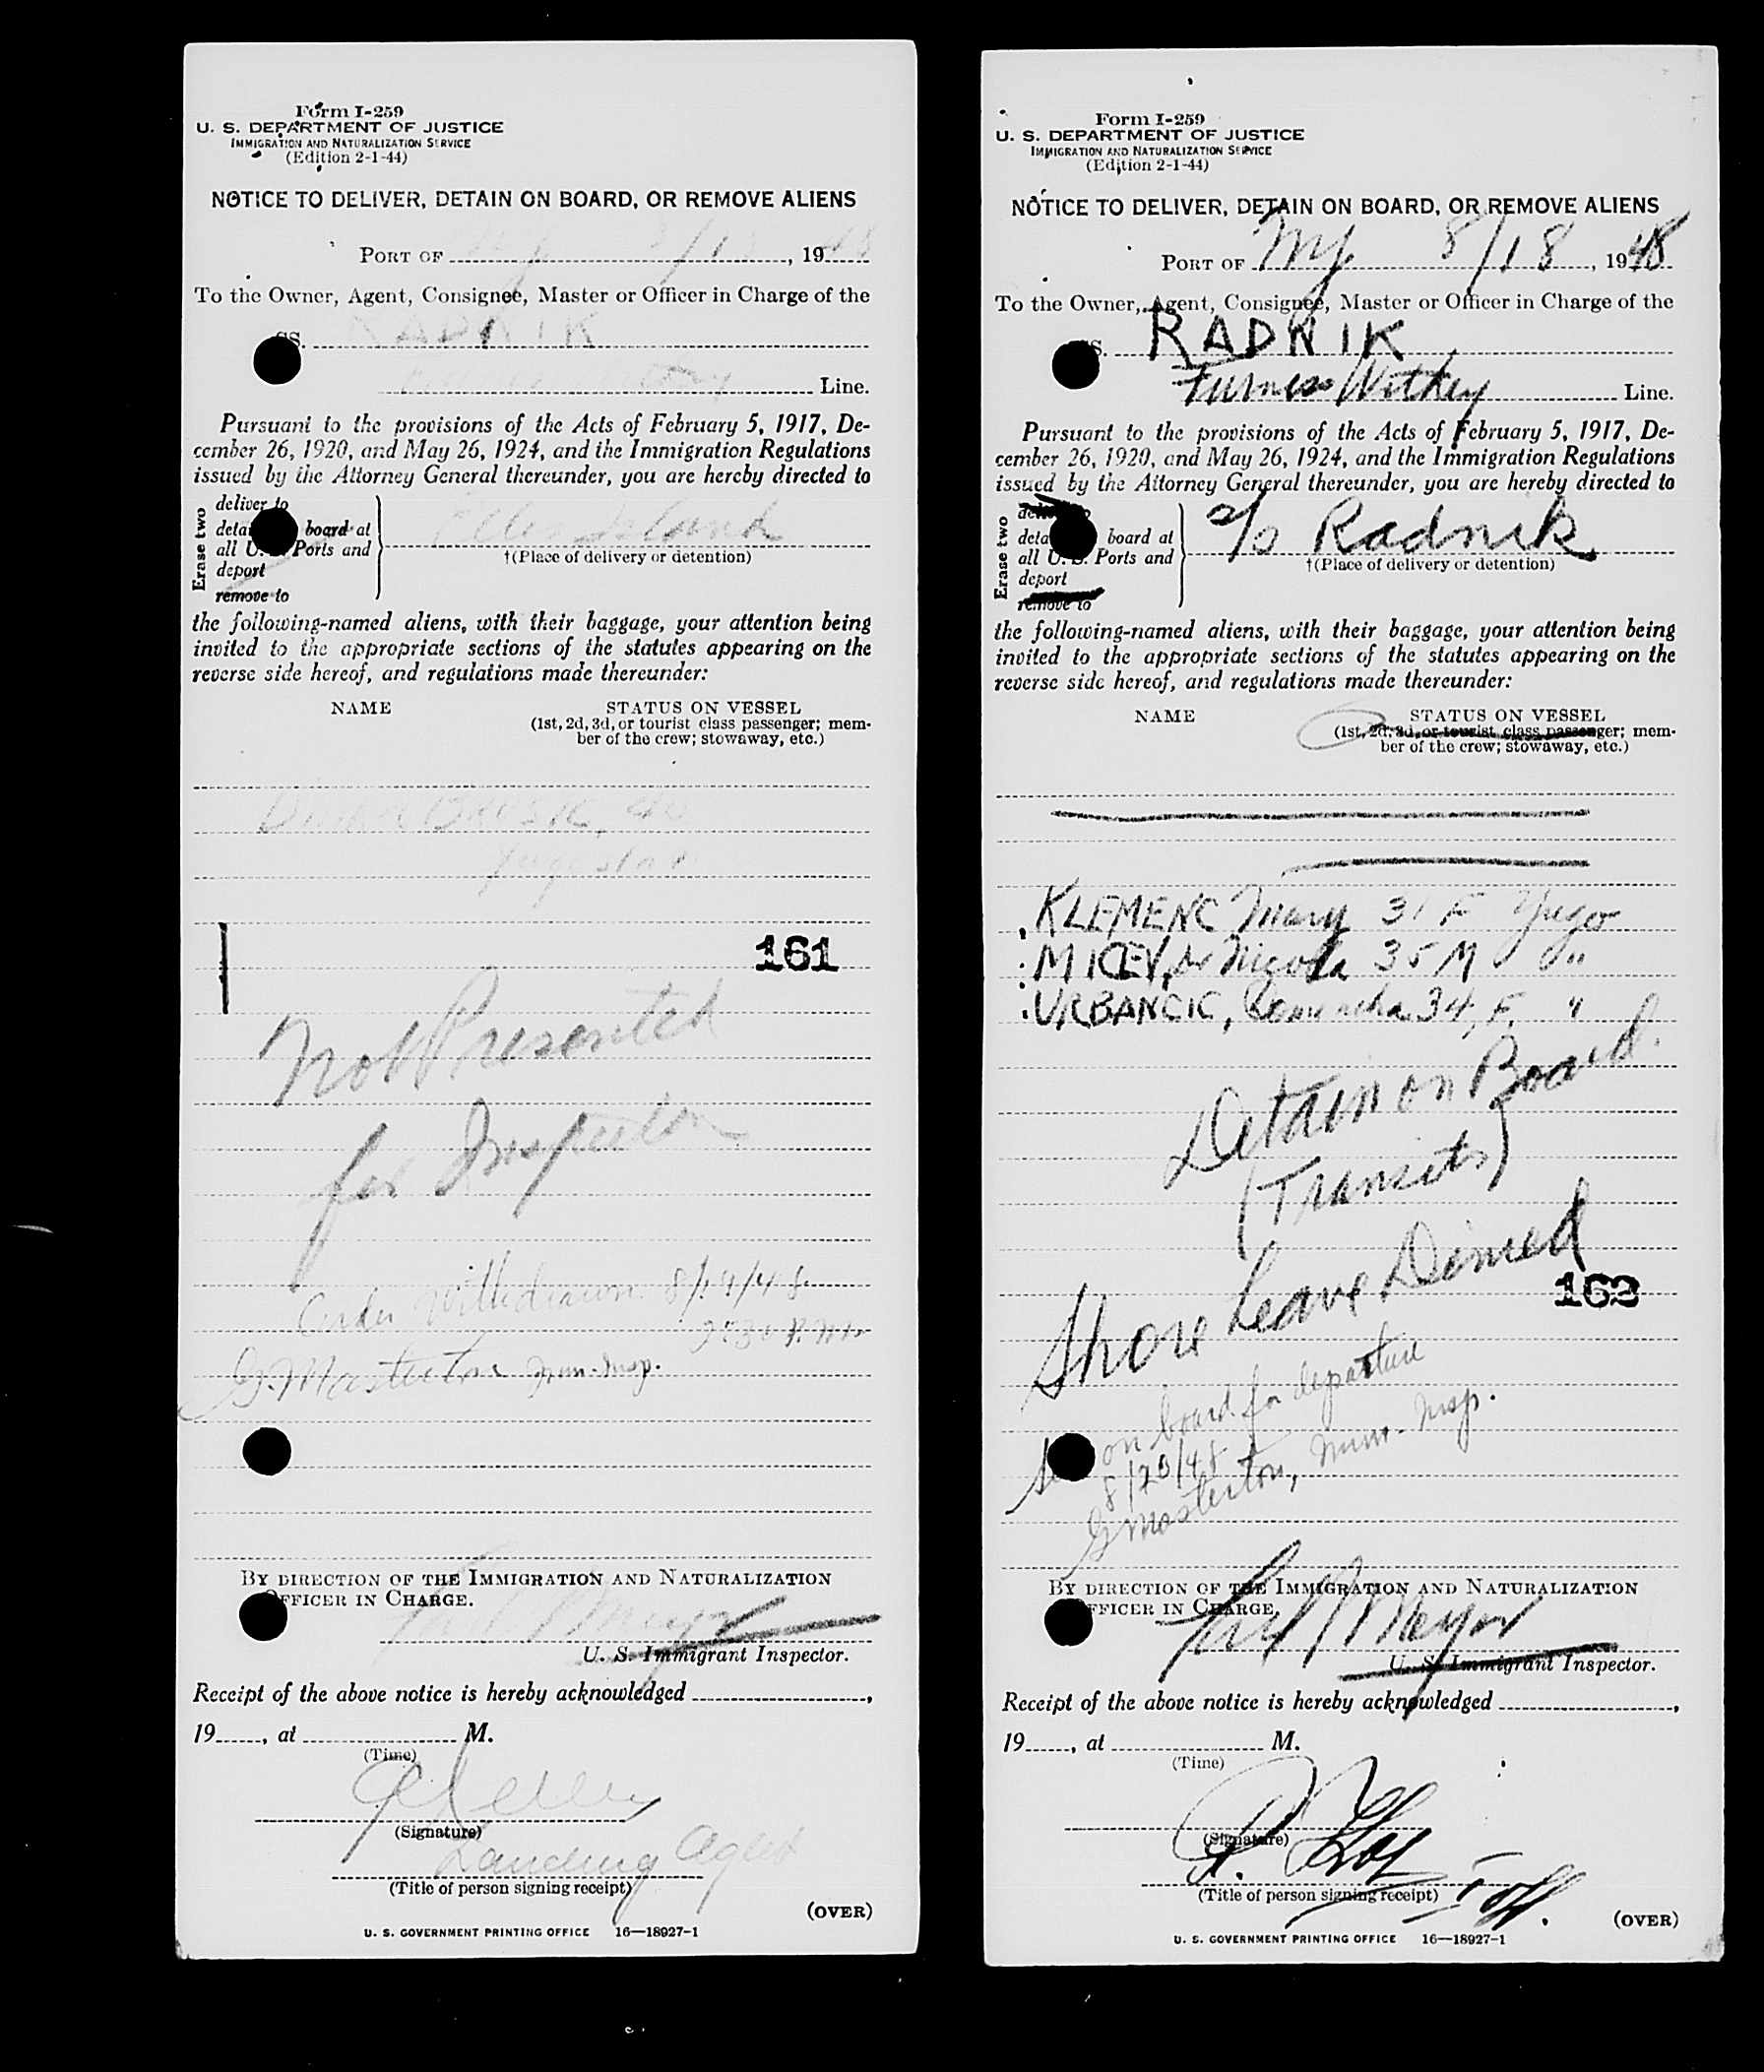 Form I-259
U. S. DEPARTMENT OF JUSTICE
IMMIGRATION AND NATURALIZATION SERVICE
(Edition 2-1-44)
NOTICE TO DELIVER, DETAIN ON BOARD, OR REMOVE ALIENS
PORT OF NY 8/18, 1948
To the Owner, Agent, Consignee, Master or Officer in Charge of the
SS. RADNIK
Line.
Pursuant to the provisions of the Acts of February 5, 1917, De-
cember 26, 1920, and May 26, 1924, and the Immigration Regulations
issued by the Attorney General thereunder, you are hereby directed to
Erase two
deliver to
board at
all U. Ports and
deport
remove to
Ellis Island
†(Place of delivery or detention)
the following-named aliens, with their baggage, your attention being
invited to the appropriate sections of the statutes appearing on the
reverse side hereof, and regulations made thereunder:
NAME STATUS ON VESSEL
(1st, 2d, 3d, or tourist class passenger; mem-
ber of the crew; stowaway, etc.)
161
Not Presented
for Inspection
Order Withdrawn 8/19/48
P.M.
G. Masterton Imm. Insp.
BY DIRECTION OF THE IMMIGRATION AND NATURALIZATION
OFFICER IN CHARGE.
Meyer
U. S. Immigrant Inspector.
Receipt of the above notice is hereby acknowledged ,
19 , at M.
(Time)
(Signature)
Landing Agent
(Title of person signing receipt)
(OVER)
U. S. GOVERNMENT PRINTING OFFICE 16—18927-1
Form I-259
U. S. DEPARTMENT OF JUSTICE
IMMIGRATION AND NATURALIZATION SERVICE
(Edition 2-1-44)
NOTICE TO DELIVER, DETAIN ON BOARD, OR REMOVE ALIENS
PORT OF NY 8/18, 1948
To the Owner, Agent, Consignee, Master or Officer in Charge of the
SS. RADNIK
Furness Withey Line.
Pursuant to the provisions of the Acts of February 5, 1917, De-
cember 26, 1920, and May 26, 1924, and the Immigration Regulations
issued by the Attorney General thereunder, you are hereby directed to
Erase two
board at
all U. S. Ports and
deport
remove to
s/s Radnik
†(Place of delivery or detention)
the following-named aliens, with their baggage, your attention being
invited to the appropriate sections of the statutes appearing on the
reverse side hereof, and regulations made thereunder:
NAME STATUS ON VESSEL
(1st, 2d, 3d, or tourist class passenger; mem-
ber of the crew; stowaway, etc.)
KLEMENC Mary 31 F Yugo
MICEV, Dr Nigola 35 M "
URBANCIC, 34, F. "
Detain on Board.
(Transits)
Shore Leave Denied
162
on board for departure
8/20/48
G Masterton, Imm. Insp.
BY DIRECTION OF THE IMMIGRATION AND NATURALIZATION
OFFICER IN CHARGE.
Meyer
U. S. Immigrant Inspector.
Receipt of the above notice is hereby acknowledged ,
19 , at M.
(Time)
(Signature)
(Title of person signing receipt)
(OVER)
U. S. GOVERNMENT PRINTING OFFICE 16—18927-1